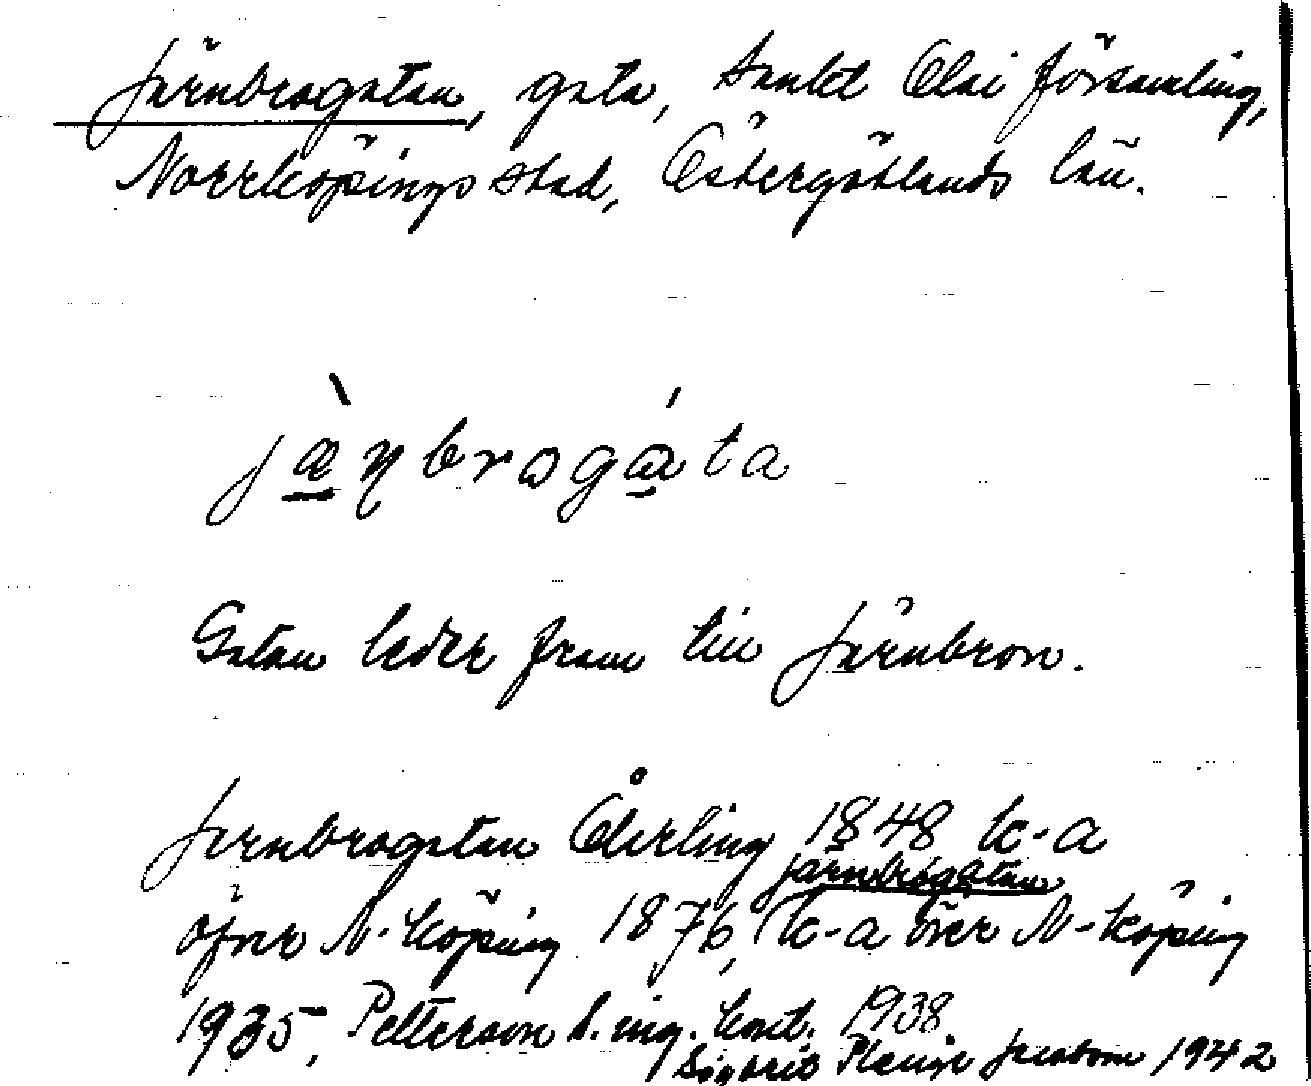 Järnbrogatan, gata, Sankt Olai församling,
Norrköpings stad, Östergötlands län.
jæ̀ṇbrogáta
Gatan leder fram till Järnbron.
Jernbrogatan 1848 k-a
Järnbrogatan
öfver N-köping 1876, k-a över N-köping
1935, Petterson 1938
Jacobson 1942